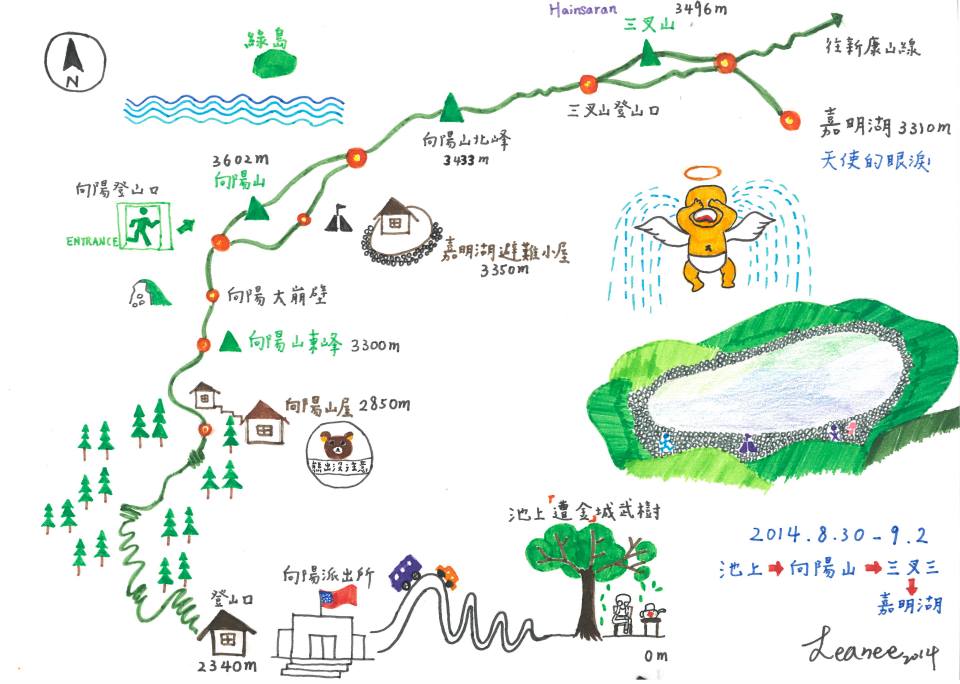 Hainsaran
3496m
三叉山
往新康山線
N
綠島
三叉山登山口
嘉明湖 3310m
天使的眼淚!
向陽山北峰
3433m
3602m
向陽山
向陽登山口
ENTRANCE
嘉明湖避難小屋
3350m
向陽大崩壁
向陽山東峰 3300m
向陽山屋 2850m
熊出沒注意
池上『遭金城武樹
2014.8.30-9.2
池上➡向陽山➡三叉三
嘉明湖
向陽派出所
登山口
2340m
0m
Leanee 2014